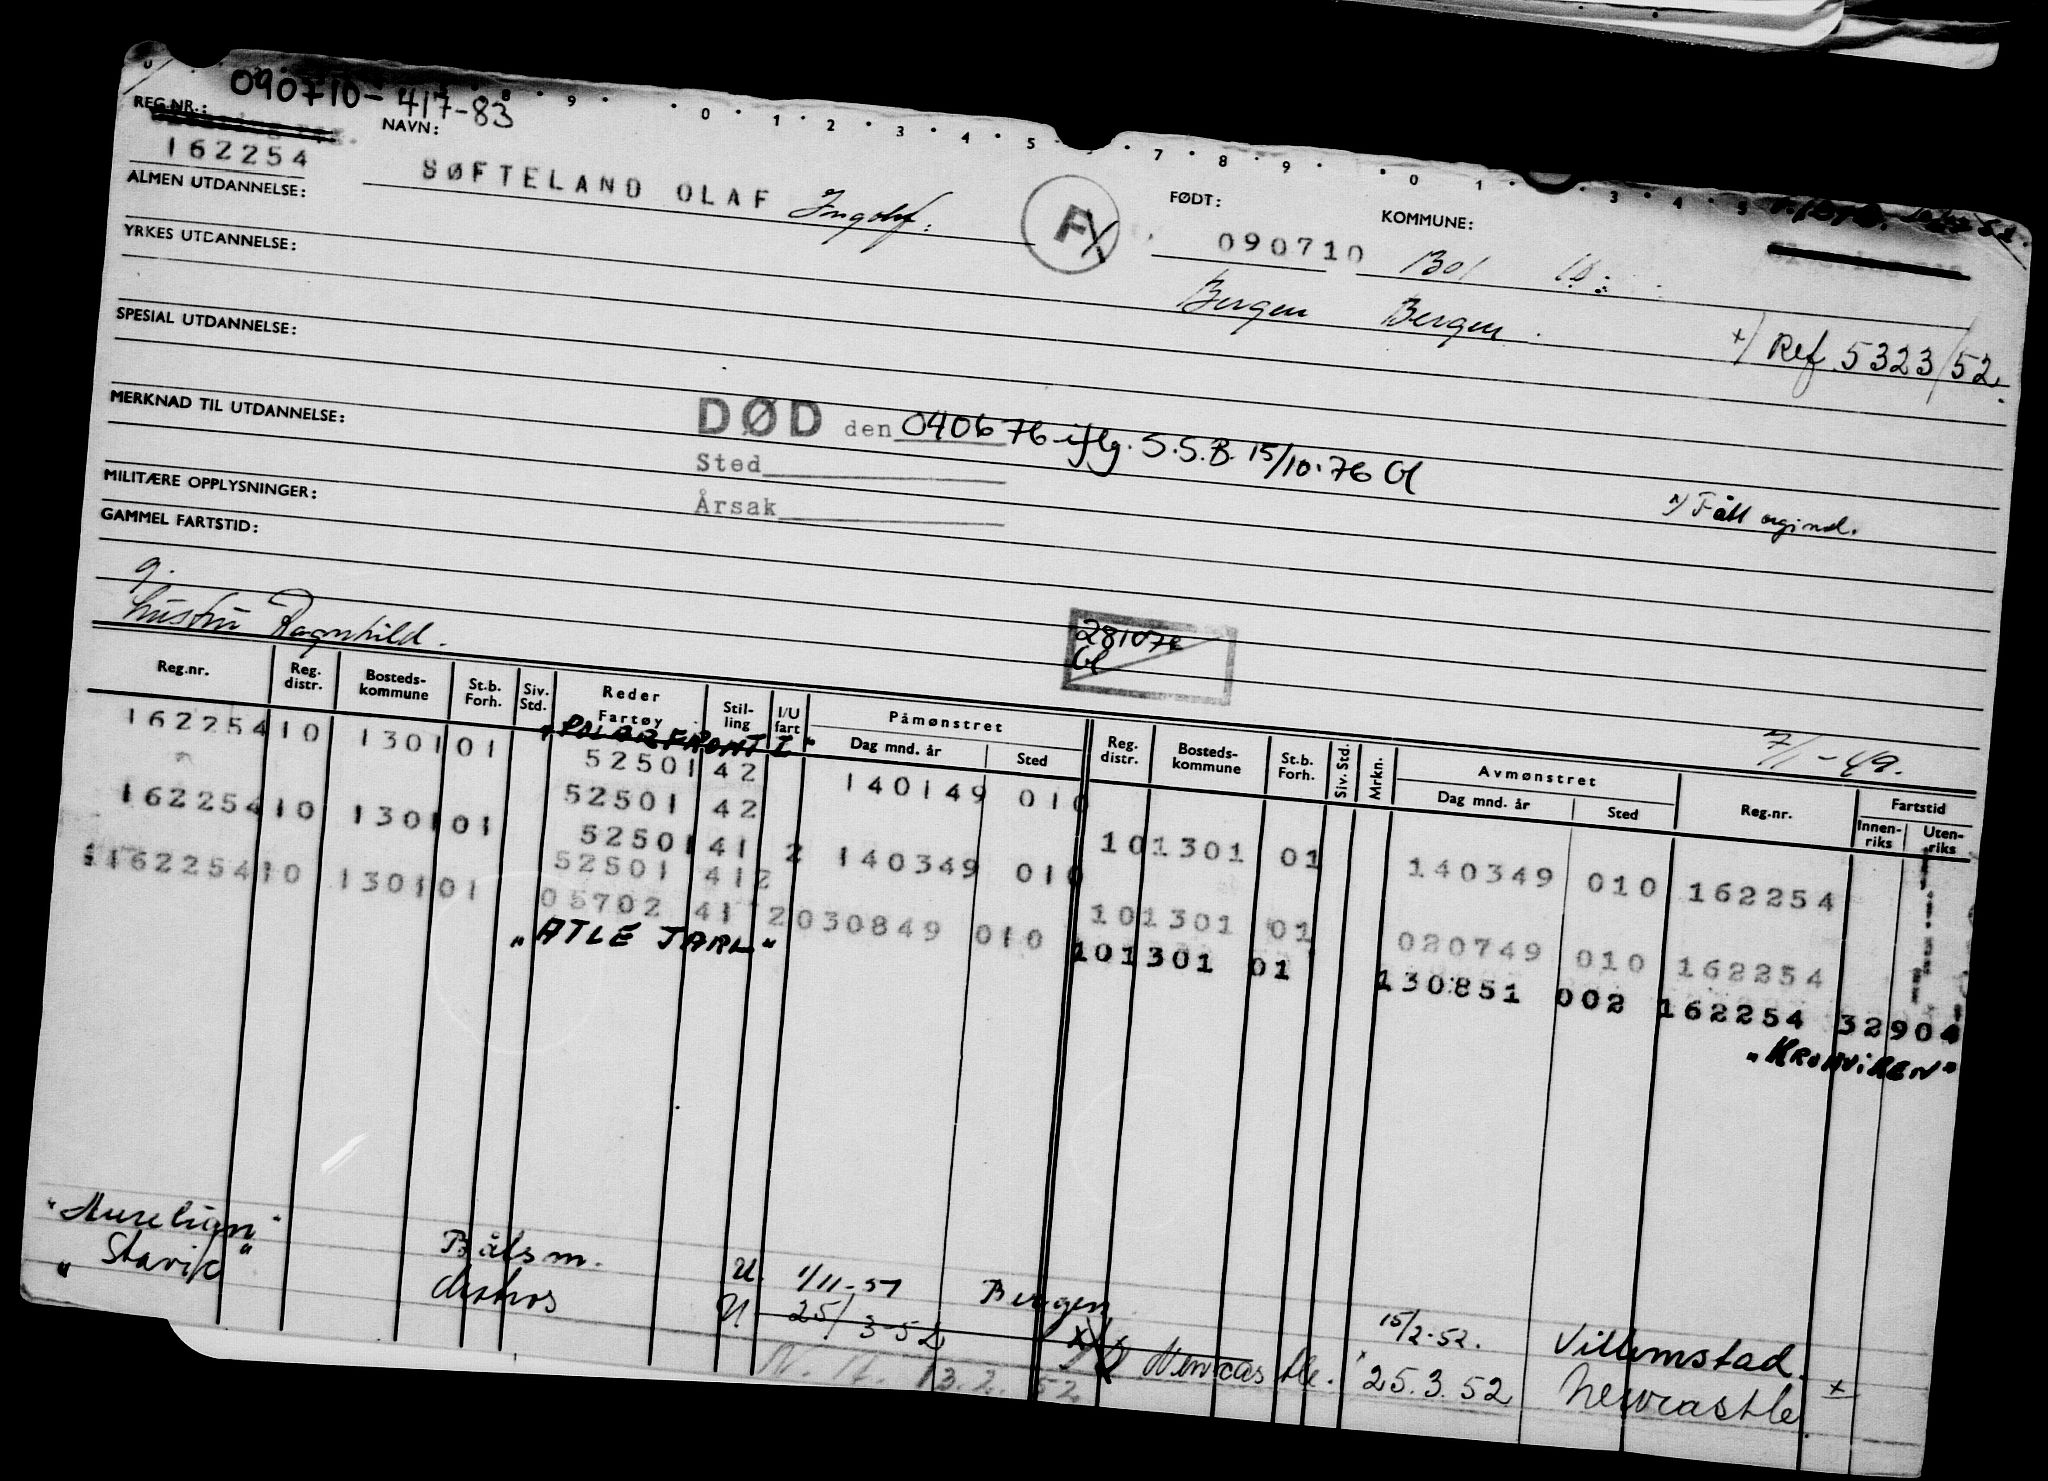 090710-417-83
0 1 2 3 4 5 7 8 9 0 1 3 4 5
REG.NR.:
162254
NAVN:
SØFTELAND OLAF Ingolf.
FØDT:
090710
KOMMUNE:
1301 10
Bergen Bergen
ALMEN UTDANNELSE:
YRKES UTDANNELSE:
x) Ref. 5323/52.
SPESIAL UTDANNELSE:
MERKNAD TIL UTDANNELSE:
DØD den 040676 iflg. S.S.B. 15/10.76 Gl
Sted
Årsak
MILITÆRE OPPLYSNINGER:
GAMMEL FARTSTID:
g.
hustru Ragnhild.
281076
Gl
7/1-49.
Reg.nr. Reg. distr. Bosteds-kommune St.b. Forh. Siv. Std. Reder Fartøy Stil-ling I/U fart Påmønstret Dag mnd. år Sted Reg. distr. Bosteds-kommune St.b. Forh. Siv. Std. Mrkn. Avmønstret Dag mnd. år Sted Reg.nr. Fartstid Innen-riks Uten-riks
"POLARFRONT I"
162254 10 1301 01 52501 42 140149 010
52501 42 10 1301 01 140349 010 162254
162254 10 1301 01 52501 41 2 140349 010
52501 41 2 10 1301 01 020749 010 162254
162254 10 1301 01 05702 41 2 030849 010
"ATLE JARL"
10 1301 01 130851 002 162254 32904
"KRONVIKEN"
"Aurelian" Båtsm. U. 1/11-51 Bergen 15/2-52. Villemstad.
"Stavik" U 25/3-52 Newcastle. 25.3.52 Newcastle x
13.2.52